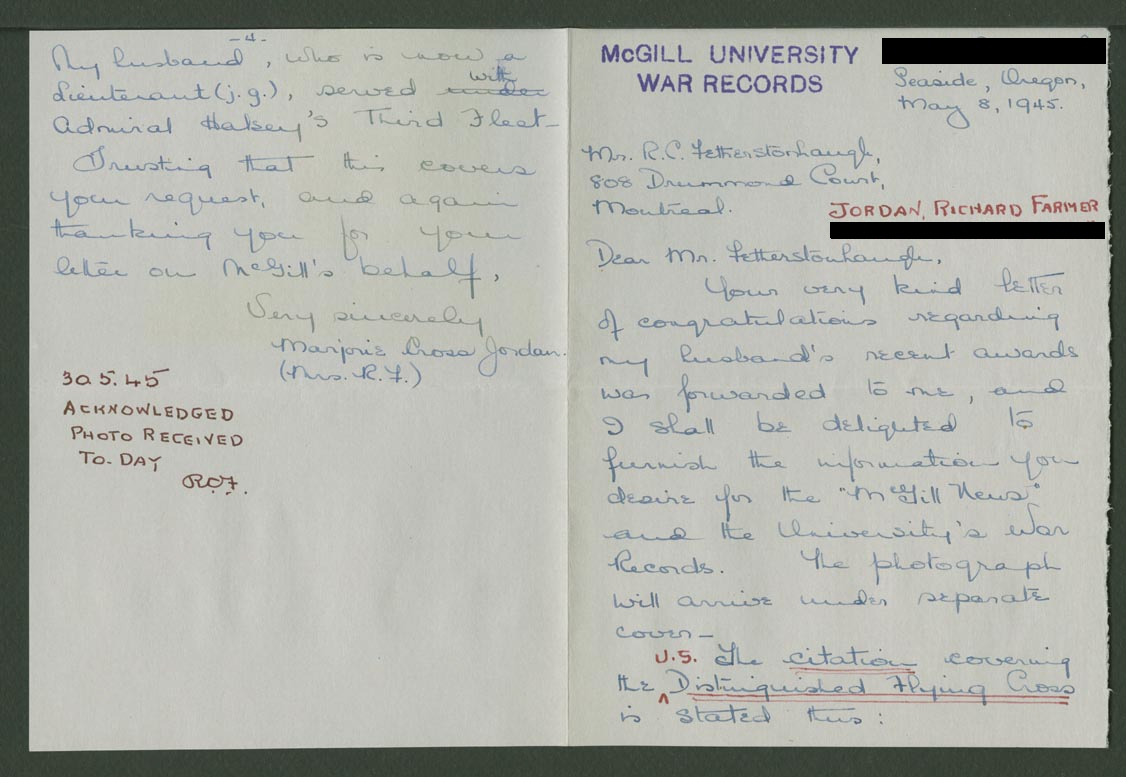 -4-
My husband, who is now a
Lieutenant (j.g.), served under with
Admiral Halsey's Third Fleet-
Trusting that this covers
your request, and again
thanking you for your
letter on McGill's behalf,
Very sincerely
Marjorie Cross Jordan.
(Mrs. R.F.)
30.5.45
ACKNOWLEDGED
PHOTO RECEIVED
TO-DAY
RCF.
McGILL UNIVERSITY
WAR RECORDS
Seaside, Oregon,
May 8, 1945.
Mr. R.C. Fetherstonhaugh,
808 Drummond Court,
Montreal.
JORDAN, RICHARD FARMER
Dear Mr. Fetherstonhaugh,
Your very kind letter
of congratulations regarding
my husband's recent awards
was forwarded to me, and
I shall be delighted to
furnish the information you
desire for the "McGill News"
and the University's War
Records. The photograph
will arrive under separate
cover-
U.S. The citation covering
the Distinguished Flying Cross
is stated thus: